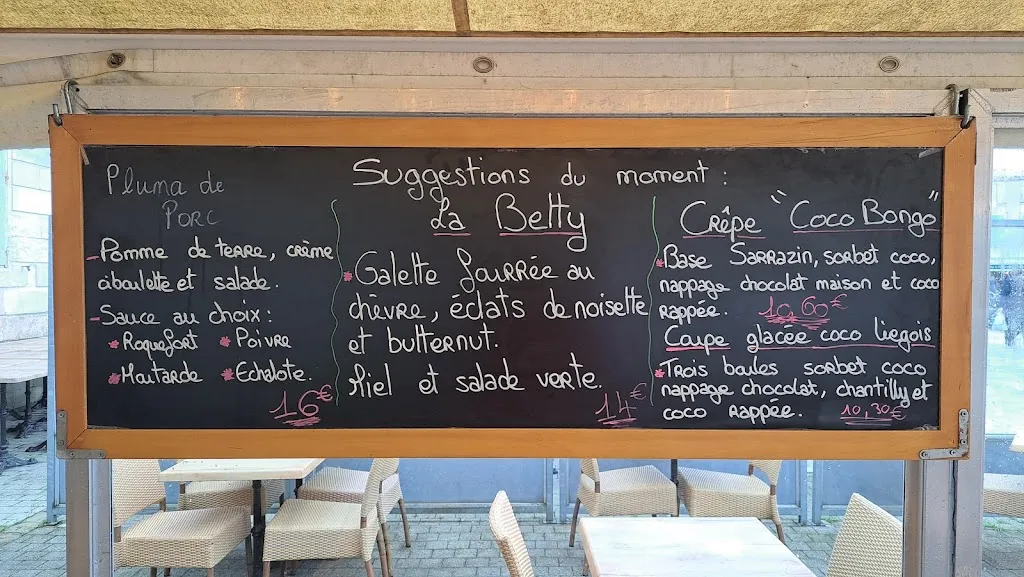 Suggestions du moment :
Pluma de
Porc
- Pomme de terre, crème
ciboulette et salade.
- Sauce au choix :
* Roquefort * Poivre
* Moutarde * Echalote.
16€
La Betty
* Galette fourrée au
chèvre, éclats de noisette
et butternut.
Miel et salade verte.
14€
Crêpe "Coco Bongo"
* Base Sarrazin, sorbet coco,
nappage chocolat maison et coco
rappée. 10,60€
Coupe glacée coco liegois
* Trois boules sorbet coco
nappage chocolat, chantilly et
coco rappée. 10,30€